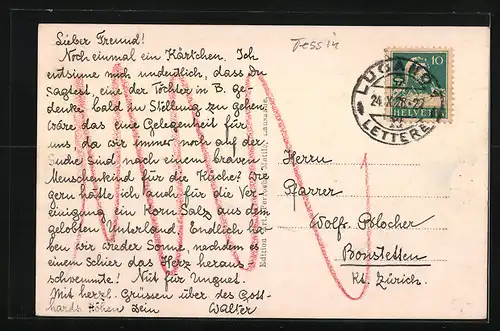 Lieber Freund!
Noch einmal ein Kärtchen. Ich
entsinne mich undeutlich, dass Du
sagtest, eine der Töchter in B. ge-
denke bald in Stellung zu gehen
wäre das eine Gelegenheit für
uns, da wir immer noch auf der
Suche sind nach einem braven
Menschenkind für die Küche? Wie
gern hätte ich auch für die Ver-
einigung ein Korn Salz aus dem
gelobten Unterland. Endlich ha-
ben wir wieder Sonne, nachdem es
einem schier das Herz heraus
schwemmte! Nüt für Unguet.
Mit herzl. Grüssen über des Gott-
hards Höhen Dein Walter
Tessin
LUGANO 1
LETTERE
10
HELVETIA
Herrn
Pfarrer
Wolfg. Blocher
Bonstetten
Kt. Zürich.